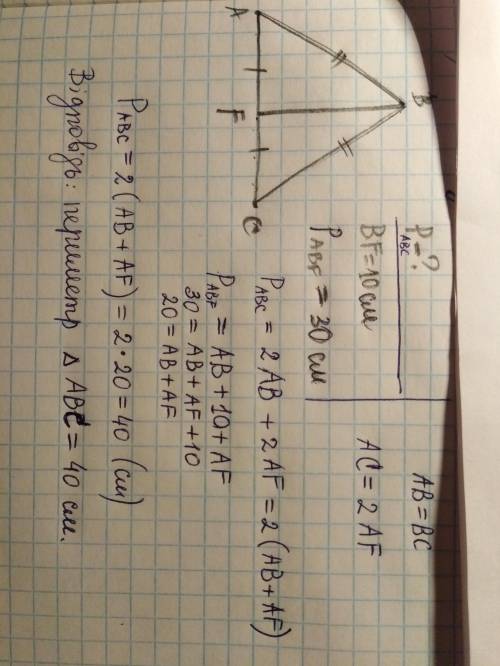 B
A
F
C
P_ABC = ?
BF = 10 см
P_ABF = 30 см
AB = BC
AC = 2 AF
P_ABC = 2 AB + 2 AF = 2 (AB + AF)
P_ABF = AB + 10 + AF
30 = AB + AF + 10
20 = AB + AF
P_ABC = 2 (AB + AF) = 2 · 20 = 40 (см)
Відповідь: периметр Δ ABC = 40 см.